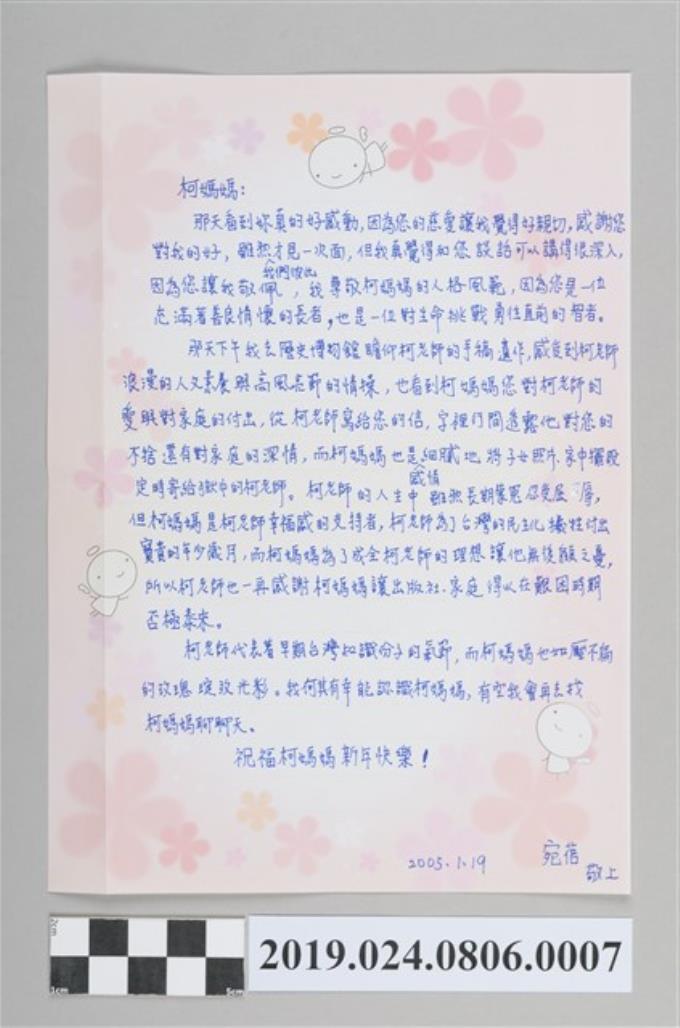 柯媽媽：
那天看到妳真的好感動，因為您的慈愛讓我覺得好親切，感謝您
對我的好，雖然才見一次面，但我真覺得和您談話可以講得很深入，
我們彼此
因為您讓我敬佩，我尊敬柯媽媽的人格風範，因為您是一位
充滿著善良情懷的長者，也是一位對生命挑戰勇往直前的智者。
那天下午我去歷史博物館瞻仰柯老師的手稿遺作，感受到柯老師
浪漫的人文素養與高風亮節的情操，也看到柯媽媽您對柯老師的
愛與對家庭的付出，從柯老師寫給您的信，字裡行間透露他對您的
不捨還有對家庭的深情，而柯媽媽也是細膩地將子女照片、家中擺設
定時寄給獄中的柯老師。柯老師的人生中雖然長期蒙冤忍受屈辱，
感情
但柯媽媽是柯老師幸福感的支持者，柯老師為了台灣的民主化犧牲付出
寶貴的年少歲月，而柯媽媽為了成全柯老師的理想讓他無後顧之憂，
所以柯老師也一再感謝柯媽媽讓出版社、家庭得以在艱困時期
否極泰來。
柯老師代表著早期台灣知識份子的氣節，而柯媽媽也如壓不扁
的玫瑰綻放光彩。我何其有幸能認識柯媽媽，有空我會再去找
柯媽媽聊聊天。
祝福柯媽媽新年快樂！
2005.1.19
宛蓓
敬上
2cm
1cm
5cm
2019.024.0806.0007